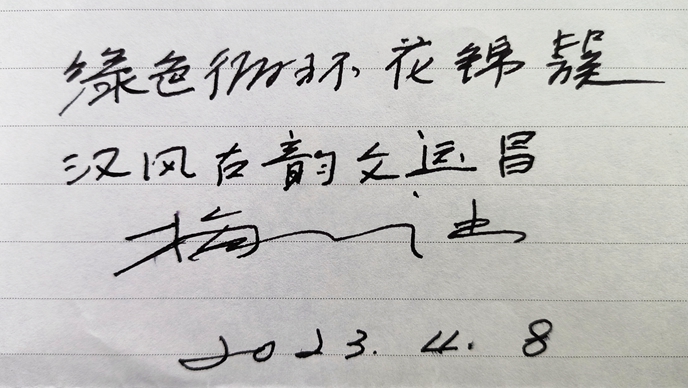 绿色循环花锦簇
汉风古韵文运昌
梅
2023.4.8